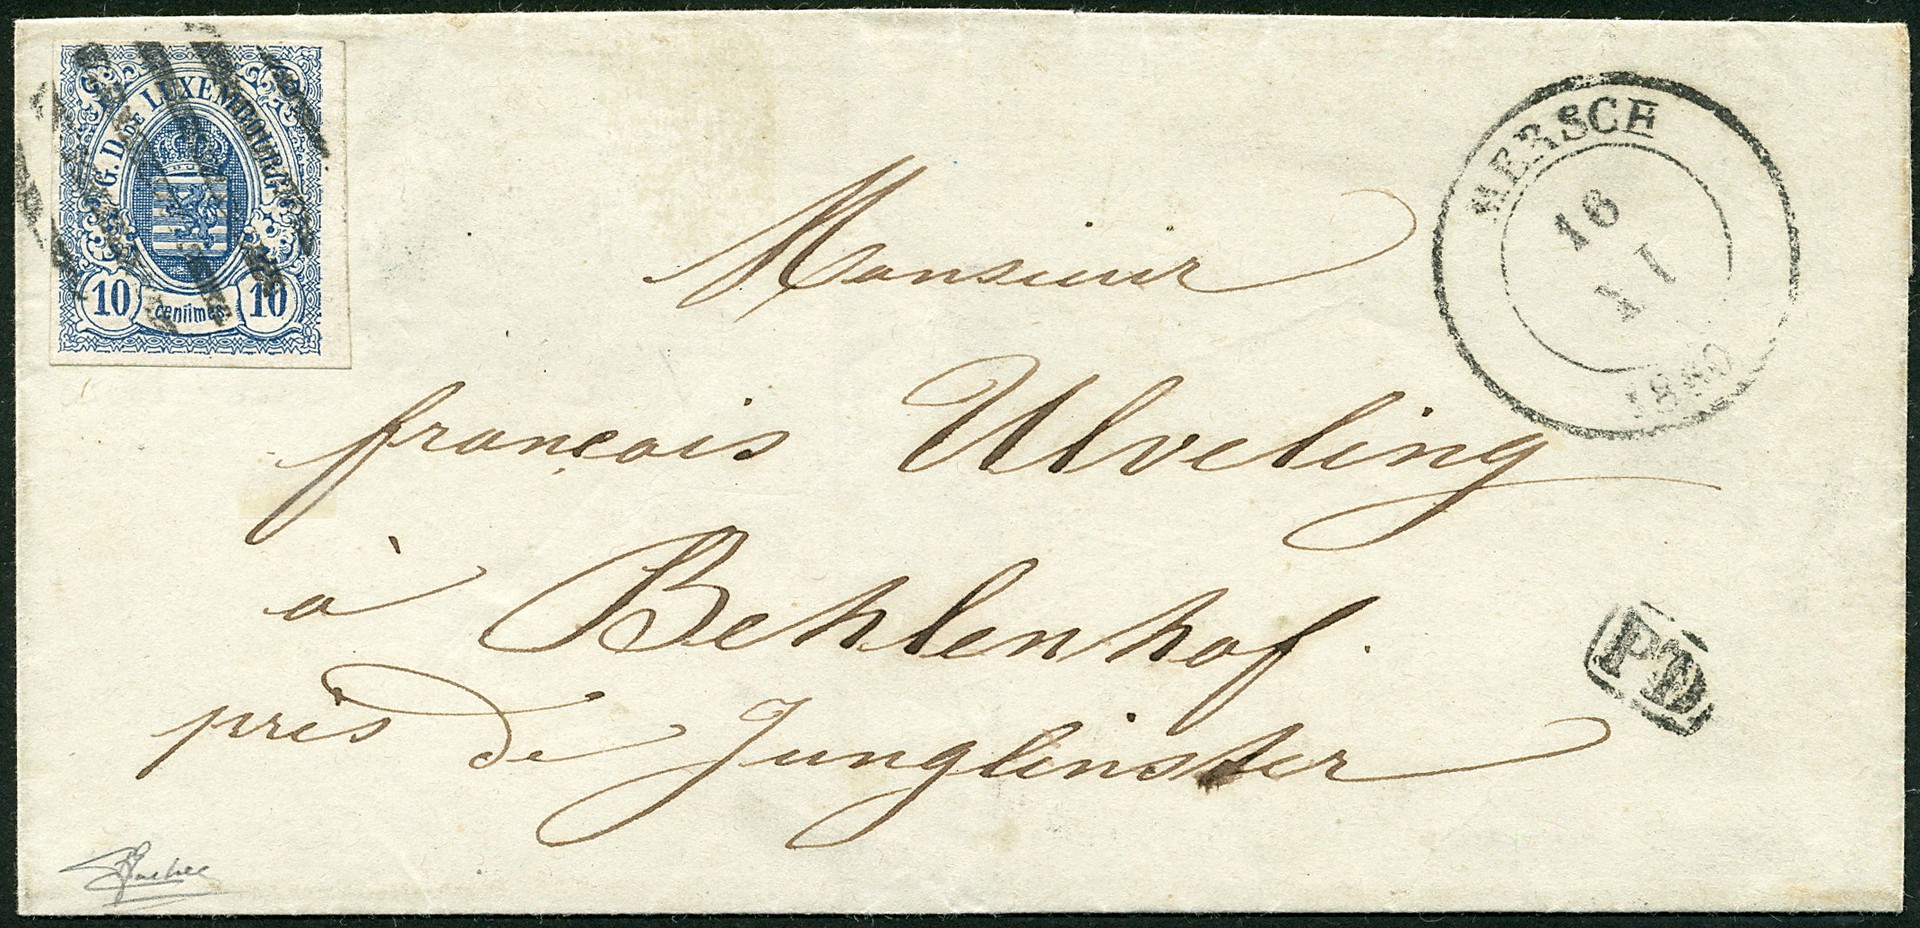 G. D. DE LUXEMBOURG
10 centimes 10
MERSCH
16
XI
1860
Monsieur
françois Ulveling
à Behlenhof.
près de Junglinster
PD